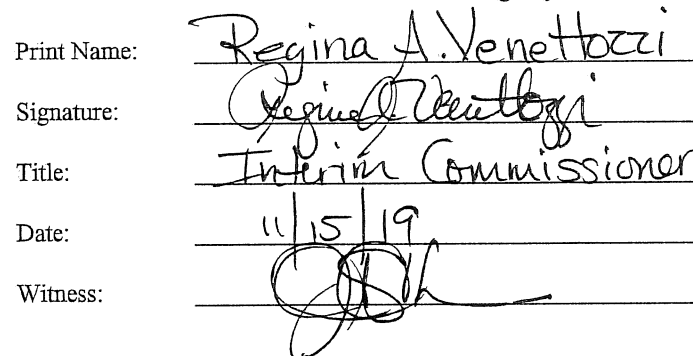 Print Name: Regina A. Venettozzi
Signature: Regina A. Venettozzi
Title: Interim Commissioner
Date: 11/15/19
Witness: